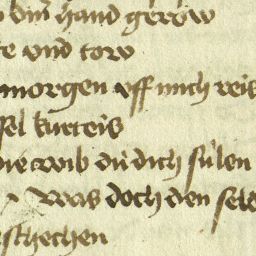 din hand gerow
te vnd tow
morgen vff mich reis
sel kurteis
die wib die dich sülen
Was doch den selb
schechen